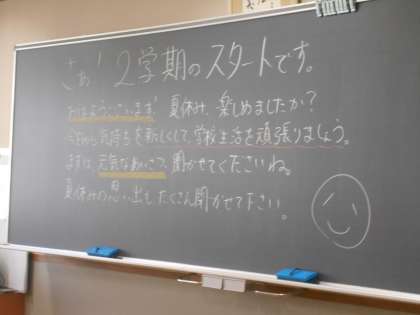 さぁ！2学期のスタートです。
おはようございます 夏休み、楽しめましたか？
今日から気持ちを新しくして、学校生活を頑張りましょう。
まずは、元気なあいさつ、聞かせてくださいね。
夏休みの思い出も、たくさん聞かせて下さい。